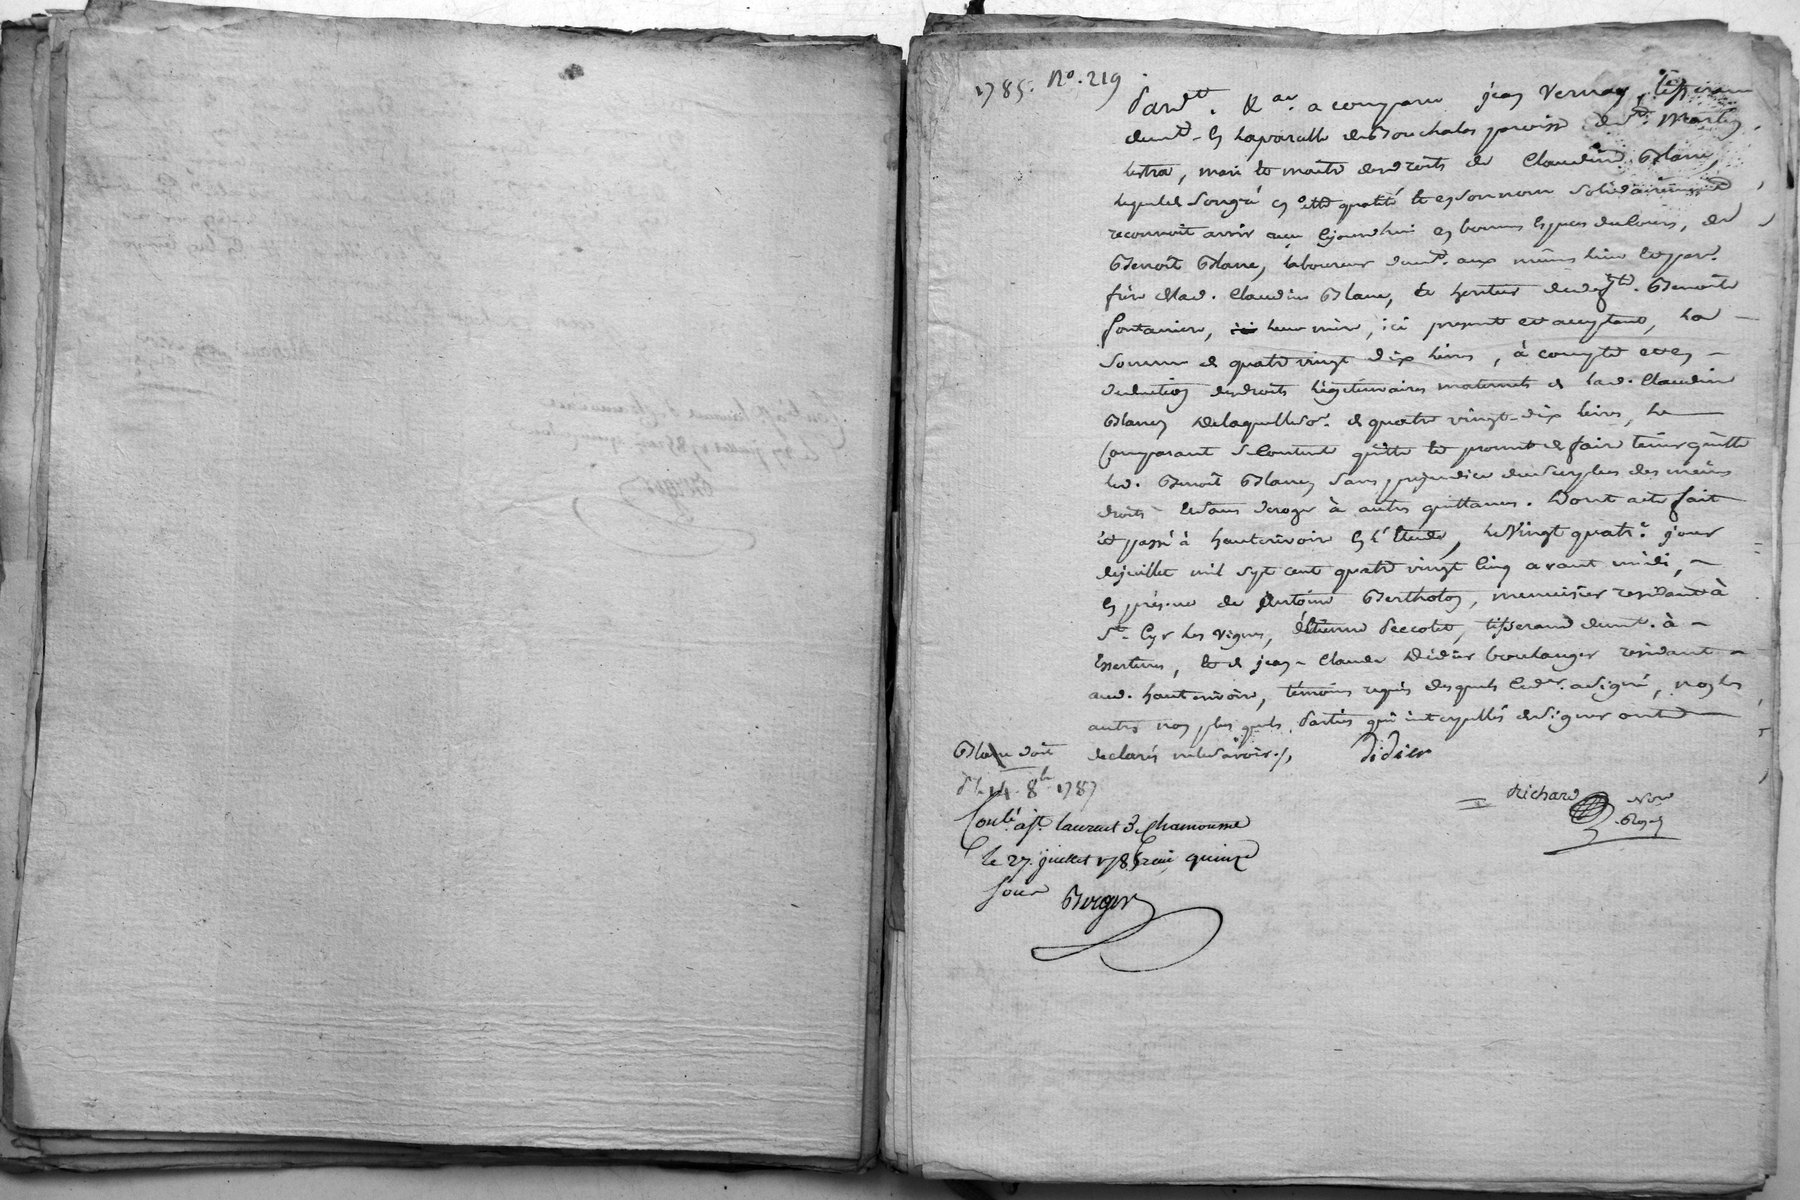 1785. No. 219
Pardt. &ar. a comparu jean Vernay, tisseran
demt. en laparcelle de Bouchalas paroisse de st. Martin
lestra, mari et maitre des droits de Claudine Blanc,
lequel de son gré en cette qualité et en son nom solidairement
reconnoit avoir recu cejourdhui en bonnes especes du cours, de
Benoit Blanc, laboureur demt. aux mêmes lieu et par.
frère de lad. Claudine Blanc, et heritier de defte. Benoite
fontanière, leur mère, ici present et acceptant, la
somme de quatre vingt dix livres, à compte et en
deduction des droits légitimaires maternels de lad. Claudine
Blanc, de laquelle so. de quatre vingt-dix livres, le
comparant se contente quitte et promet de faire tenir quitte
led. Benoit Blanc, sans prejudice du surplus des mêmes
droits et sans deroger à autres quittances. Dont acte fait
et passé à hauterivoire en l'Etude, le vingt quatre. jour
de juillet mil sept cent quatre vingt cinq avant midi,
en présence de Antoine Bertholon, menuisier residant à
st. Cyr les vignes, Etienne Peccolet, tisserand demt. à
Essertines, et de jean-Claude Didier boulanger residant
aud. hauterivoire, témoins requis desquels led. der. a signé, non les
autres non plus que les Parties qui interpellés de signer ont
declarés ne le savoir./.
Didier
Blanc doit
14. 8bre 1787
Richard Nore
Royal
Conlé. a st. laurent de Chamousse
le 27. juillet 1785 recu quinze
sous Berger